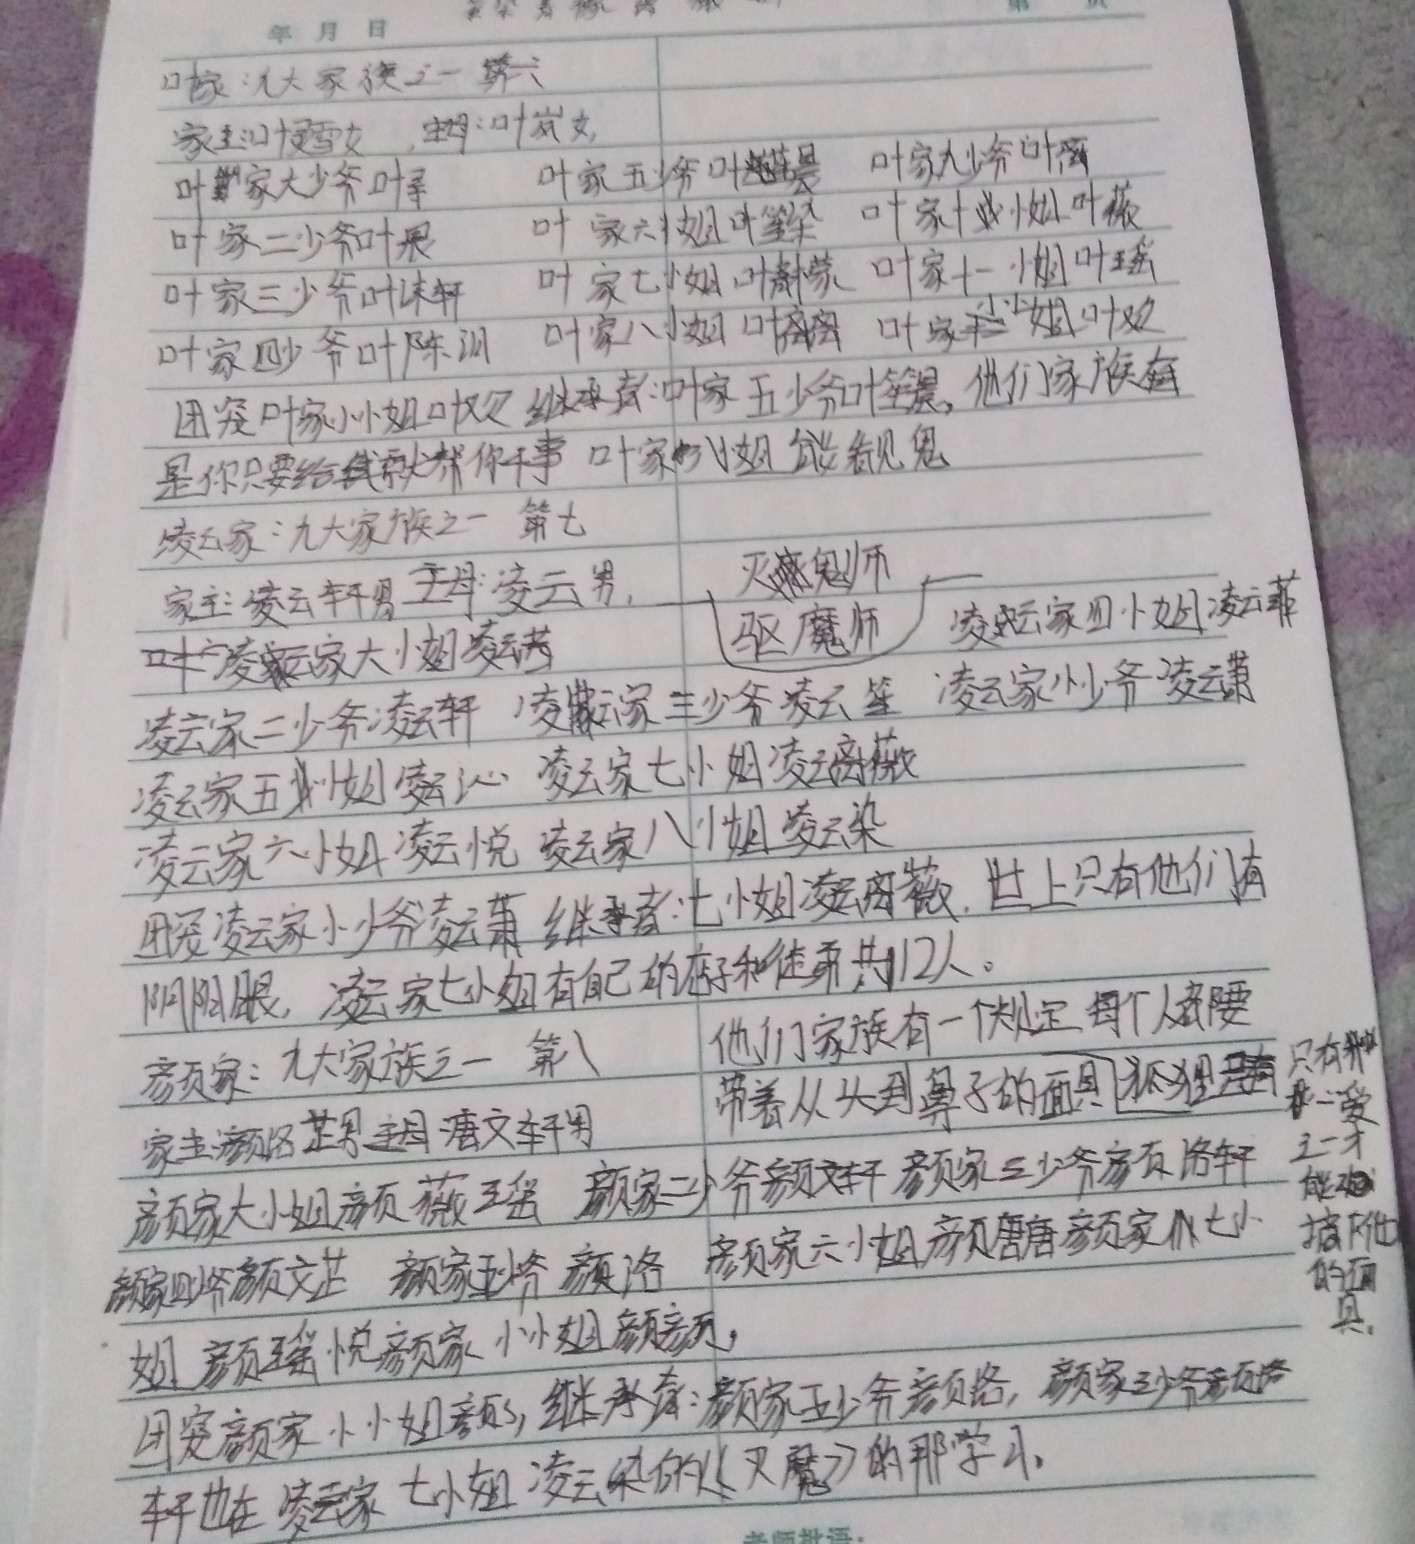 年 月 日
第 页
叶家:九大家族之一 第六
家主:叶 雪女 主母:叶岚女
叶家大少爷叶 叶家五少爷叶 叶家九少爷叶
叶家二少爷叶 叶家六小姐叶 染 叶家十小姐叶薇
叶家三少爷叶沫轩 叶家七小姐叶 蒙 叶家十一小姐叶瑶
叶家四少爷叶陈 叶家八小姐叶离离 叶家小小姐叶双
团宠叶家小小姐叶双 继承者:叶家五少爷叶笙晨,他们家族
是你只要给钱就帮你干事 叶家 小姐能看见鬼
凌云家:九大家族之一 第七
家主:凌云轩男 主母:凌云男, 灭 鬼师
驱魔师
凌云家大小姐凌云 凌云家四小姐凌云菲
凌云家二少爷凌云轩 凌云家三少爷凌云笙 凌云家小少爷凌云萧
凌云家五小姐凌云沁 凌云家七小姐凌云离薇
凌云家六小姐凌云悦 凌云家八小姐凌云染
团宠凌云家小少爷凌云萧 继承者:七小姐凌云离薇.世上只有他们有
阴阳眼,凌云家七小姐有自己的店子和徒弟共12人。
颜家:九大家族之一 第八 他们家族有一个规定 每个人都要
带着从头到鼻子的面具 狐狸 只有
家主:颜洛芷男 主母:唐文轩男
爱
主一才
能
摘下他
的面
具.
颜家大小姐颜薇瑶 颜家二少爷颜文轩 颜家三少爷颜洛轩
颜家四少爷颜文芷 颜家五少爷颜洛 颜家六小姐颜唐唐 颜家七小
姐 颜瑶悦 颜家小小姐颜颜,
团宠颜家小小姐颜 , 继承者:颜家五少爷颜洛,颜家三少爷颜洛
轩也在凌云家七小姐凌云染的《灭魔》的那学习.
老师批语: